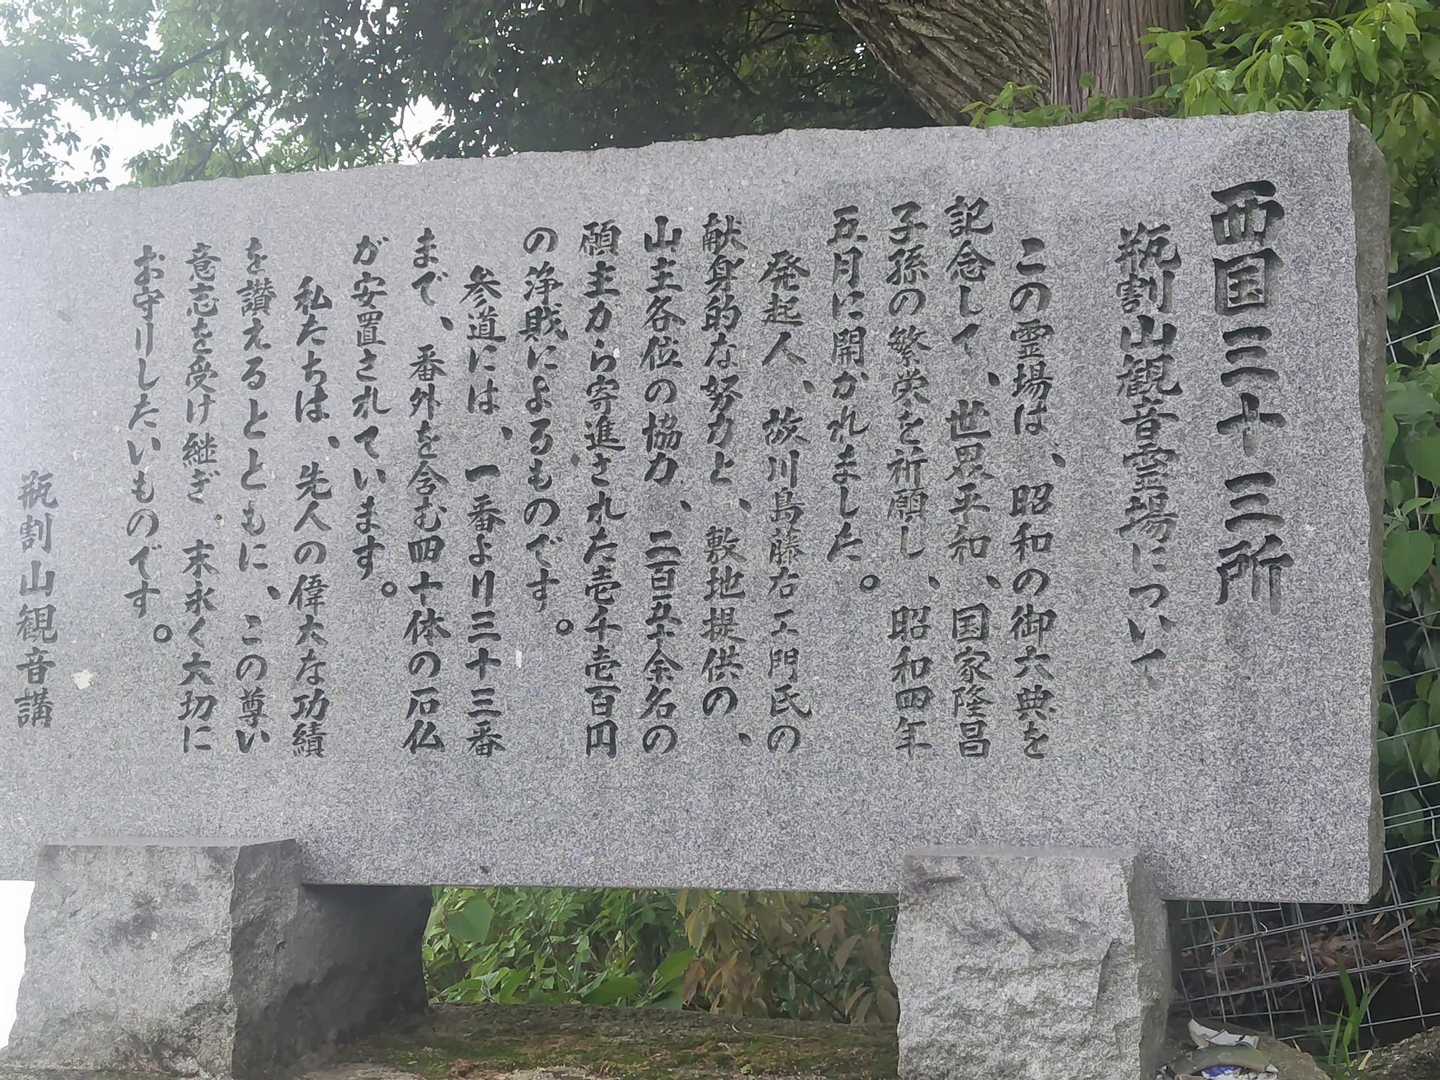 西国三十三所
瓶割山観音霊場について
この霊場は、昭和の御大典を
記念して、世界平和、国家隆昌
子孫の繁栄を祈願し、昭和四年
五月に開かれました。
発起人、故川島藤右エ門氏の
献身的な努力と、敷地提供の、
山主各位の協力、二百五十余名の
願主から寄進された壱千壱百円
の浄財によるものです。
参道には、一番より三十三番
まで、番外を含む四十体の石仏
が安置されています。
私たちは、先人の偉大な功績
を讃えるとともに、この尊い
意志を受け継ぎ、末永く大切に
お守りしたいものです。
瓶割山観音講